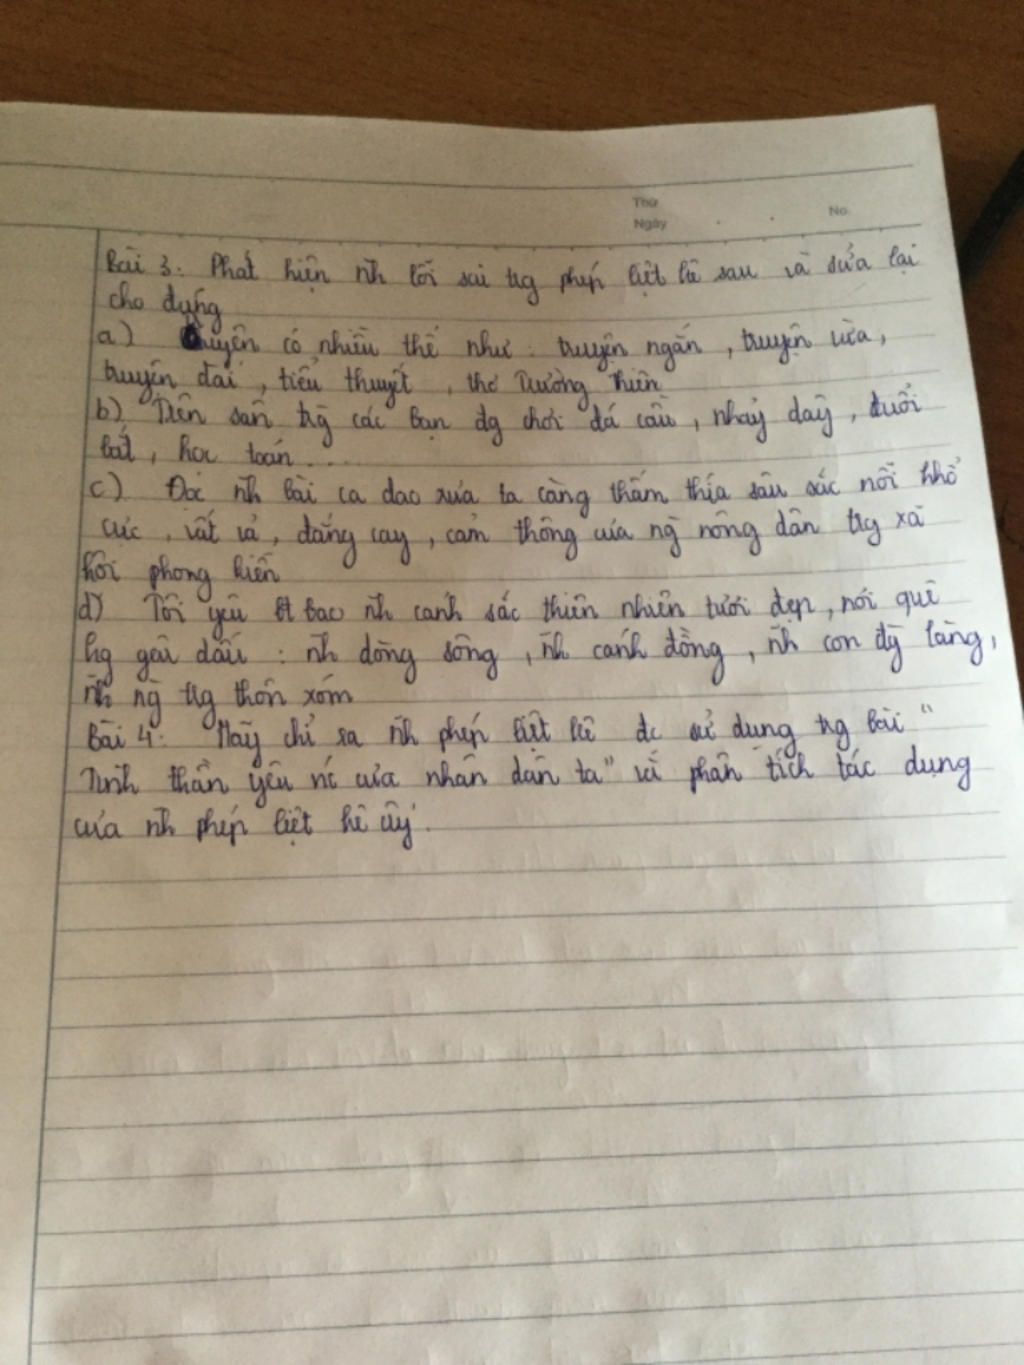 Thứ
Ngày No.
Bài 3: Phát hiện nh lỗi sai trg phép liệt kê sau và sửa lại
cho đụng
a) Truyện có nhiều thể như: truyện ngắn, truyện vừa,
truyện dài, tiểu thuyết, thơ Trường thiên
b) Trên sân trg các bạn đg chơi đá cầu, nhảy dây, đuổi
bắt, học toán....
c) Đọc nh bài ca dao xưa ta càng thấm thía sâu sắc nỗi khổ
cực, vất vả, đắng cay, cảm thông của ng nông dân trg xã
hội phong kiến
d) Tôi yêu bt bao nh cảnh sắc thiên nhiên tươi đẹp, nơi quê
hg gây dấu: nh dòng sông, nh cánh đồng, nh con đg làng,
nh ng trg thôn xóm
Bài 4: Hãy chỉ ra nh phép liệt kê đc sử dụng trg bài "
Tinh thần yêu nc của nhân dân ta" và phân tích tác dụng
của nh phép liệt kê ấy.